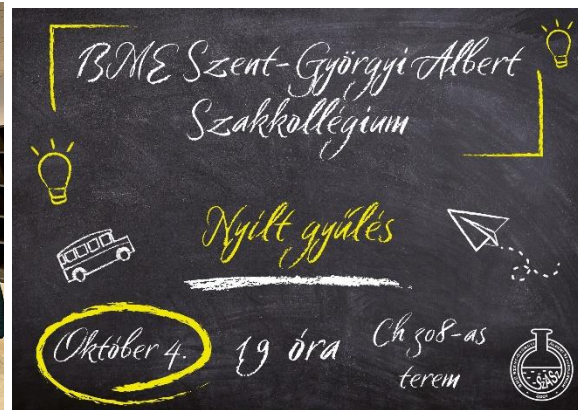 BME Szent-Györgyi Albert
Szakkollégium
Nyílt gyűlés
Október 4.
19 óra
Ch 308-as
terem
SZASZ